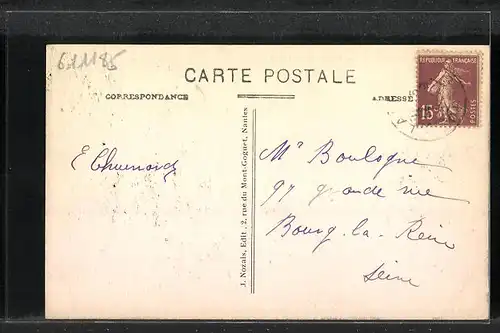 61185
CARTE POSTALE
CORRESPONDANCE
ADRESSE
REPUBLIQUE FRANÇAISE
15c
POSTES
J. Nozais, Edit., 2, rue du Mont-Goguet, Nantes
Mr Boulogne
97 grande rue
Bourg-la-Reine
Seine